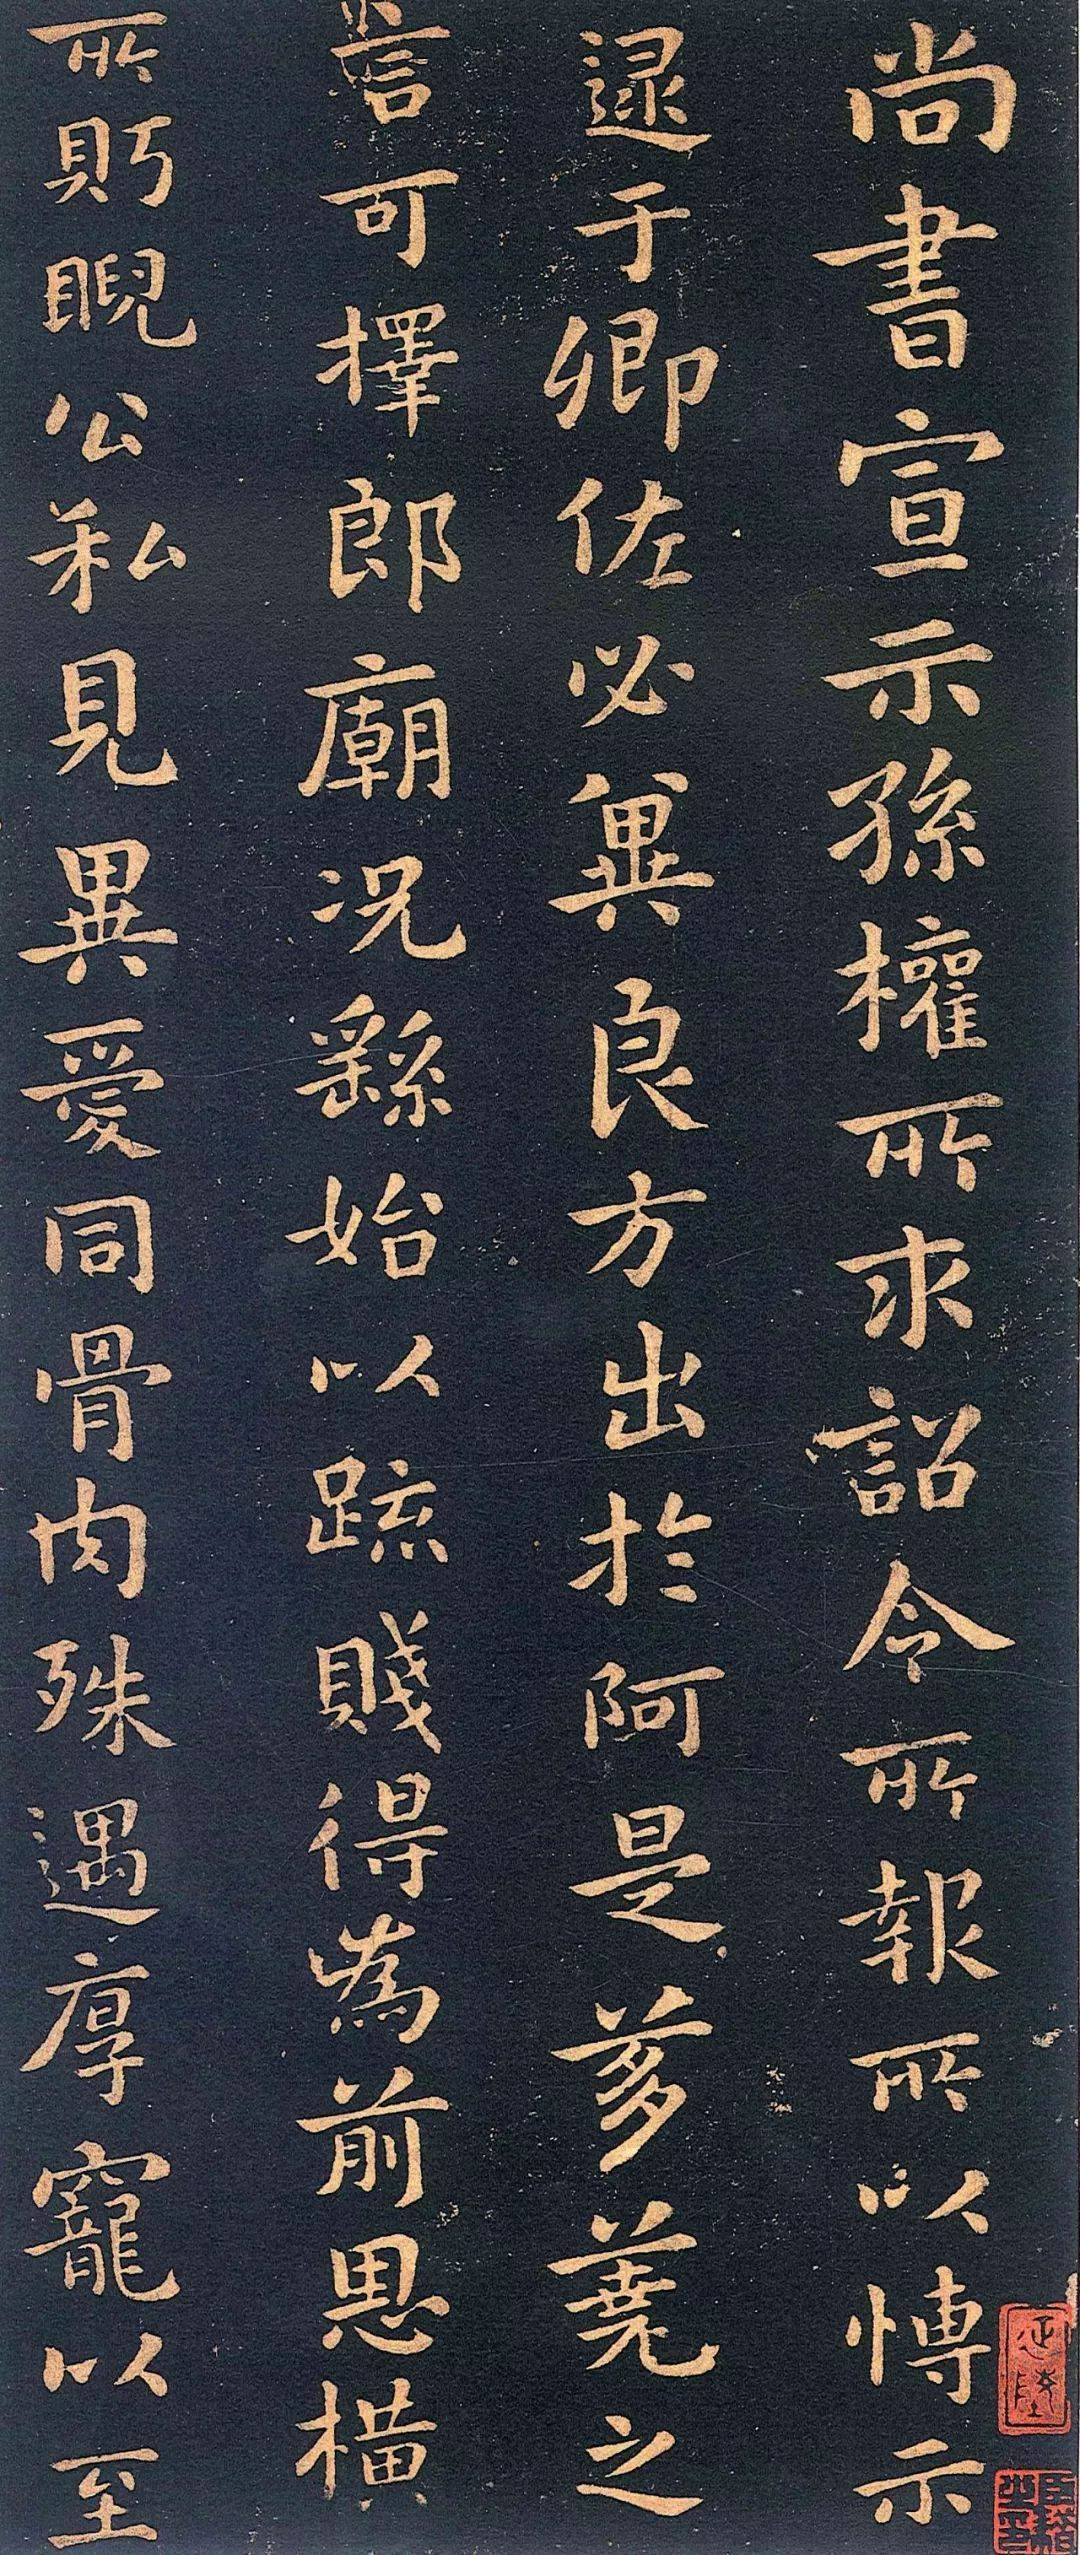 尚書宣示孫權所求詔令所報所以博示
逯于卿佐必兾良方出於阿是芻蕘之
言可擇郎廟況繇始以疏賤得為前恩橫
所眄睨公私見異愛同骨肉殊遇厚寵以至